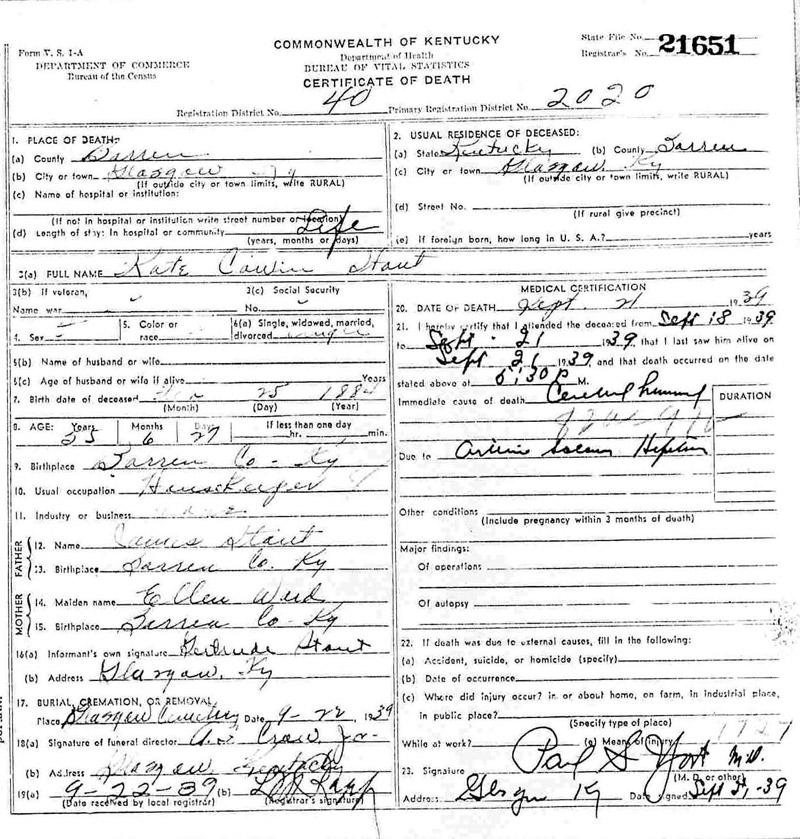 Form V. S. 1-A
DEPARTMENT OF COMMERCE
Bureau of the Census
COMMONWEALTH OF KENTUCKY
Department of Health
BUREAU OF VITAL STATISTICS
CERTIFICATE OF DEATH
State File No.
Registrar's No. 21651
Registration District No. 40 Primary Registration District No. 2020
1. PLACE OF DEATH:
(a) County Barren
(b) City or town Glasgow Ky
(If outside city or town limits, write RURAL)
(c) Name of hospital or institution:
(If not in hospital or institution write street number or location)
(d) Length of stay: In hospital or community Life
(years, months or days)
2. USUAL RESIDENCE OF DECEASED:
(a) State Kentucky (b) County Barren
(c) City or town Glasgow Ky
(If outside city or town limits, write RURAL)
(d) Street No.
(If rural give precinct)
(e) If foreign born, how long in U. S. A.? years
3(a) FULL NAME Kate Stout
3(b) If veteran,
Name war
3(c) Social Security
No.
4. Sex
5. Color or
race
6(a) Single, widowed, married,
divorced Single
6(b) Name of husband or wife
6(c) Age of husband or wife if alive Years
7. Birth date of deceased 25 1884
(Month) (Day) (Year)
8. AGE: Years Months Days If less than one day
55 6 27 hr. min.
9. Birthplace Barren Co - Ky
10. Usual occupation Housekeeper
11. Industry or business
FATHER
12. Name James Stout
13. Birthplace Barren Co. Ky
MOTHER
14. Maiden name Ellen
15. Birthplace Barren Co Ky
16(a) Informant's own signature Gertrude Stout
(b) Address Glasgow, Ky
17. BURIAL, CREMATION, OR REMOVAL
Place Glasgow Cemetery Date 9-22, 1939
18(a) Signature of funeral director Crow
(b) Address Glasgow Kentucky
19(a) 9-22-39 (b)
(Date received by local registrar) (Registrar's signature)
MEDICAL CERTIFICATION
20. DATE OF DEATH Sept. 21 1939
21. I hereby certify that I attended the deceased from Sept 18 1939
to Sept - 21 1939, that I last saw him alive on
Sept 21 1939, and that death occurred on the date
stated above at 5:30 P M.
Immediate cause of death Cerebral
DURATION
Due to
Other conditions
(Include pregnancy within 3 months of death)
Major findings:
Of operations
Of autopsy
22. If death was due to external causes, fill in the following:
(a) Accident, suicide, or homicide (specify)
(b) Date of occurrence
(c) Where did injury occur? in or about home, on farm, in industrial place,
in public place?
(Specify type of place)
While at work? (e) Means of injury
23. Signature Paul S York M.D.
(M. D. or other)
Address Glasgow Ky Date signed Sept 21, -39